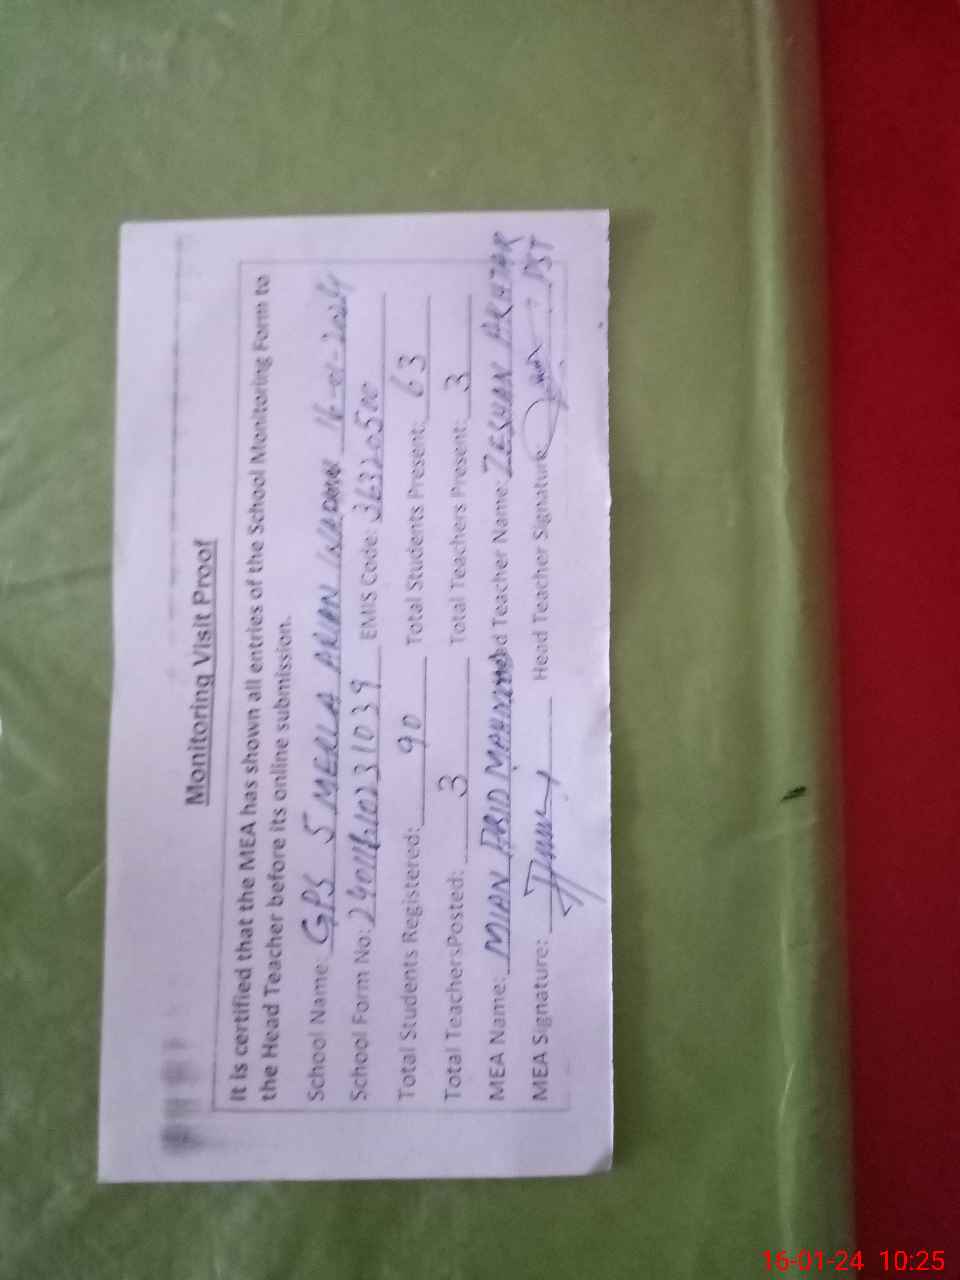 Monitoring Visit Proof
It is certified that the MEA has shown all entries of the School Monitoring Form to
the Head Teacher before its online submission.
School Name: GPS 5 MEULA 16-01-2024
School Form No: EMIS Code: 36320500
Total Students Registered: 90 Total Students Present: 63
Total TeachersPosted: 3 Total Teachers Present: 3
MEA Name: MIAN ABID MAHMOOD Head Teacher Name: ZESHAN AKHTAR
MEA Signature: Head Teacher Signature PST
16-01-24 10:25